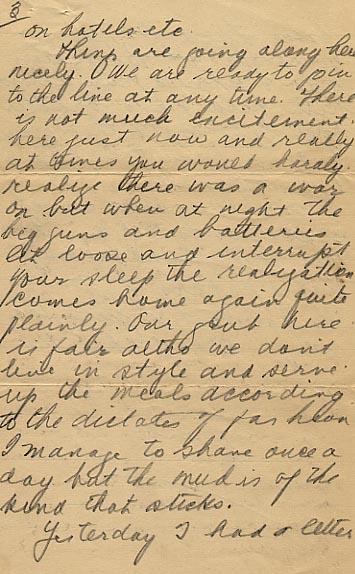 3
on hotels etc.
Things are going along here
nicely. We are ready to join
to the line at any time. There
is not much excitement
here just now and really
at times you would hardly
realize there was a war
on but when at night the
big guns and batteries
let loose and interrupt
your sleep the realization
comes home again quite
plainly. Our grub here
is fair altho we dont
live in style and serve
up the meals according
to the dictates of fashion
I manage to shave once a
day but the mud is of the
kind that sticks.
Yesterday I had a letter